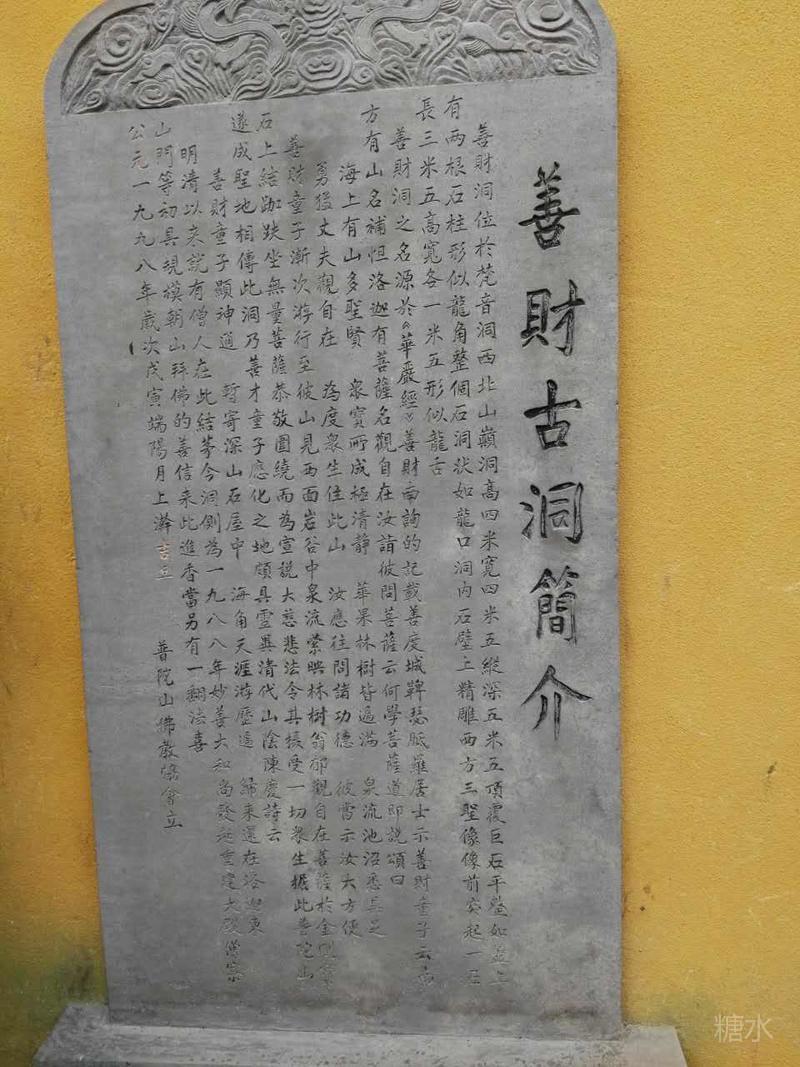 善財古洞簡介
善財洞位於梵音洞西北山巔洞高四米寬四米五縱深五米五頂覆巨石平整如蓋上
有两根石柱形似龍角整個石洞狀如龍口洞内石壁上精雕西方三聖像像前突起一石
長三米五高寬各一米五形似龍舌
善財洞之名源於《華嚴經》善財南詢的記載善度城鞞瑟胝羅居士示善財童子云南
方有山名補怛洛迦有菩薩名觀自在汝詣彼問菩薩云何學菩薩道即説頌曰
海上有山多聖賢 衆寳所成極清静 華果林樹皆遍滿 泉流池沼悉具足
勇猛丈夫觀自在 為度衆生住此山 汝應往問諸功德 彼當示汝大方便
善財童子漸次游行至彼山見西面岩谷中泉流縈映林樹蓊郁觀自在菩薩於金剛寳
石上結跏趺坐無量菩薩恭敬圍繞而為宣説大慈悲法令其攝受一切衆生據此普陀山
遂成聖地相傳此洞乃善才童子應化之地頗具靈異清代山陰陳慶詩云
善財童子顯神通 暫寄深山石屋中 海角天涯游歷遍 歸來還在洛迦東
明清以來就有僧人在此結茅今洞側為一九八八年妙善大和尚發起重建大殿僧寮
山門等初具規模朝山拜佛的善信來此進香當另有一翻法喜
公元一九九八年歲次戊寅端陽月上澣吉立 普陀山佛教協會立
糖水